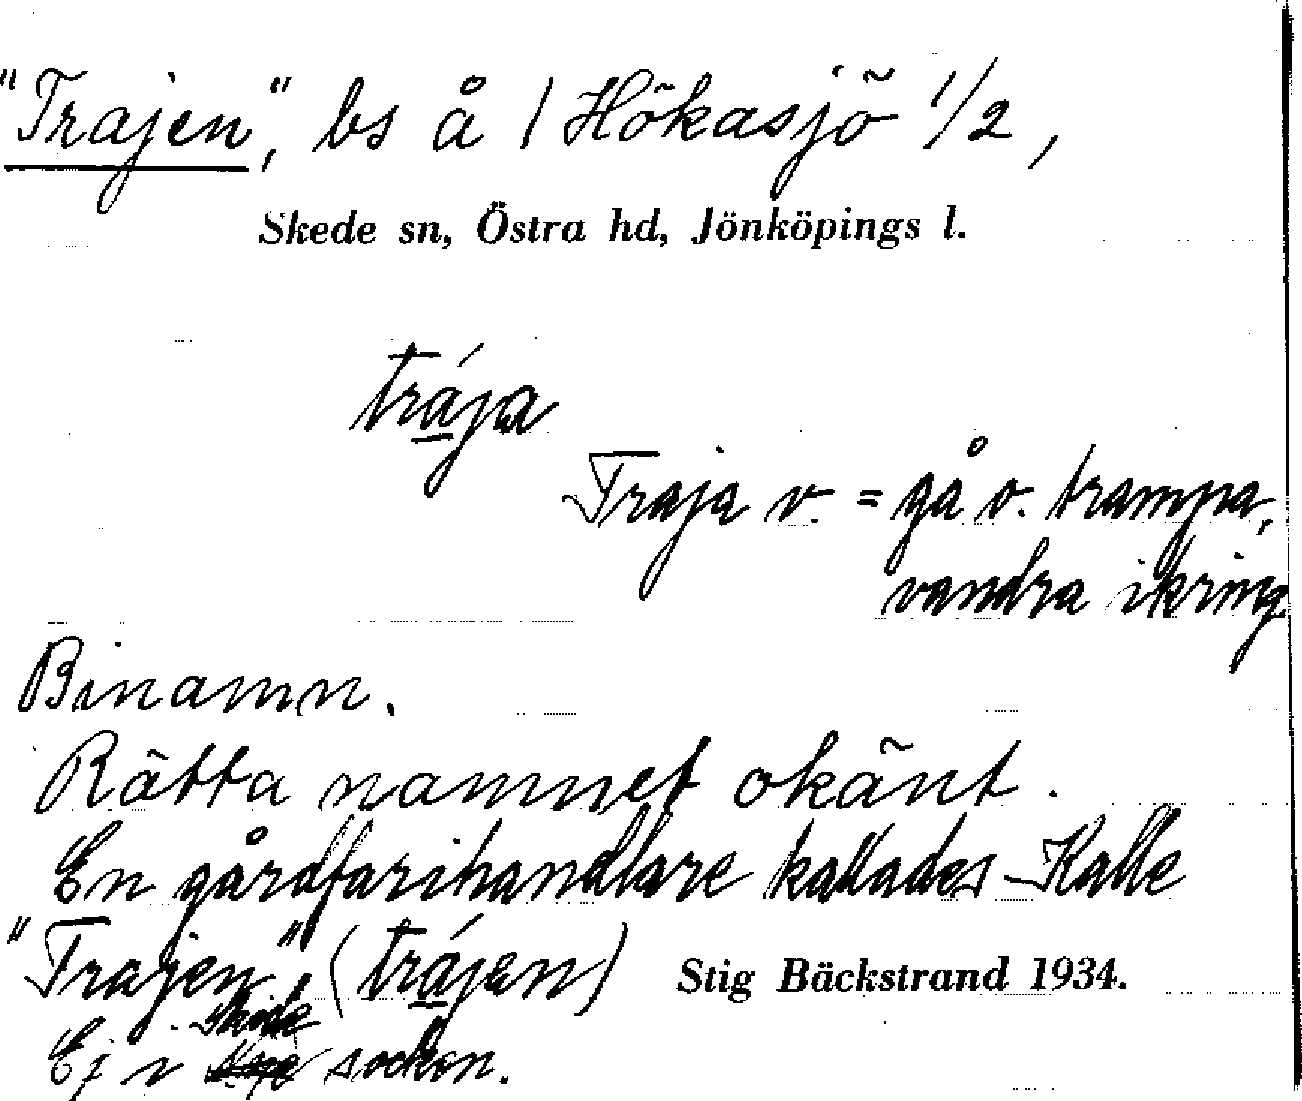 "Trajen", bs å 1 Hökasjö 1/2,
Skede sn, Östra hd, Jönköpings l.
trája
Traja v. = gå o. trampa,
vandra ikring
Binamn.
Rätta namnet okänt.
En gårdfarihandlare kallades Kalle
"Trajen" (trájen) Stig Bäckstrand 1934.
Skede
Ej i socken.